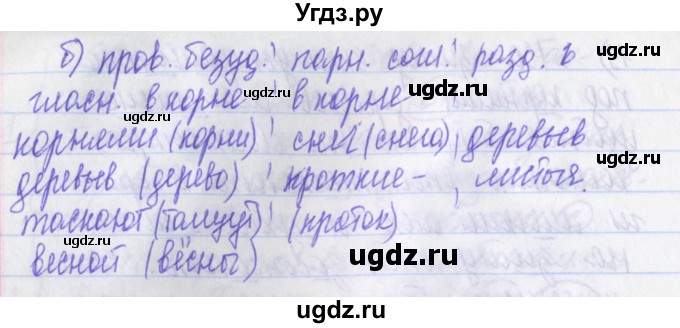 Угдз.ру
б) пров. безуд. парн. согл. разд. ь
гласн. в корне в корне
ugdz.ru ugdz.ru
корнями (корни) снег (снега) деревьев
ugdz.ru
деревьев (дерево) кроткие – листья.
таскают (тащут) (кроток)
весной (вёсны)
ugdz.ru ugdz.ru